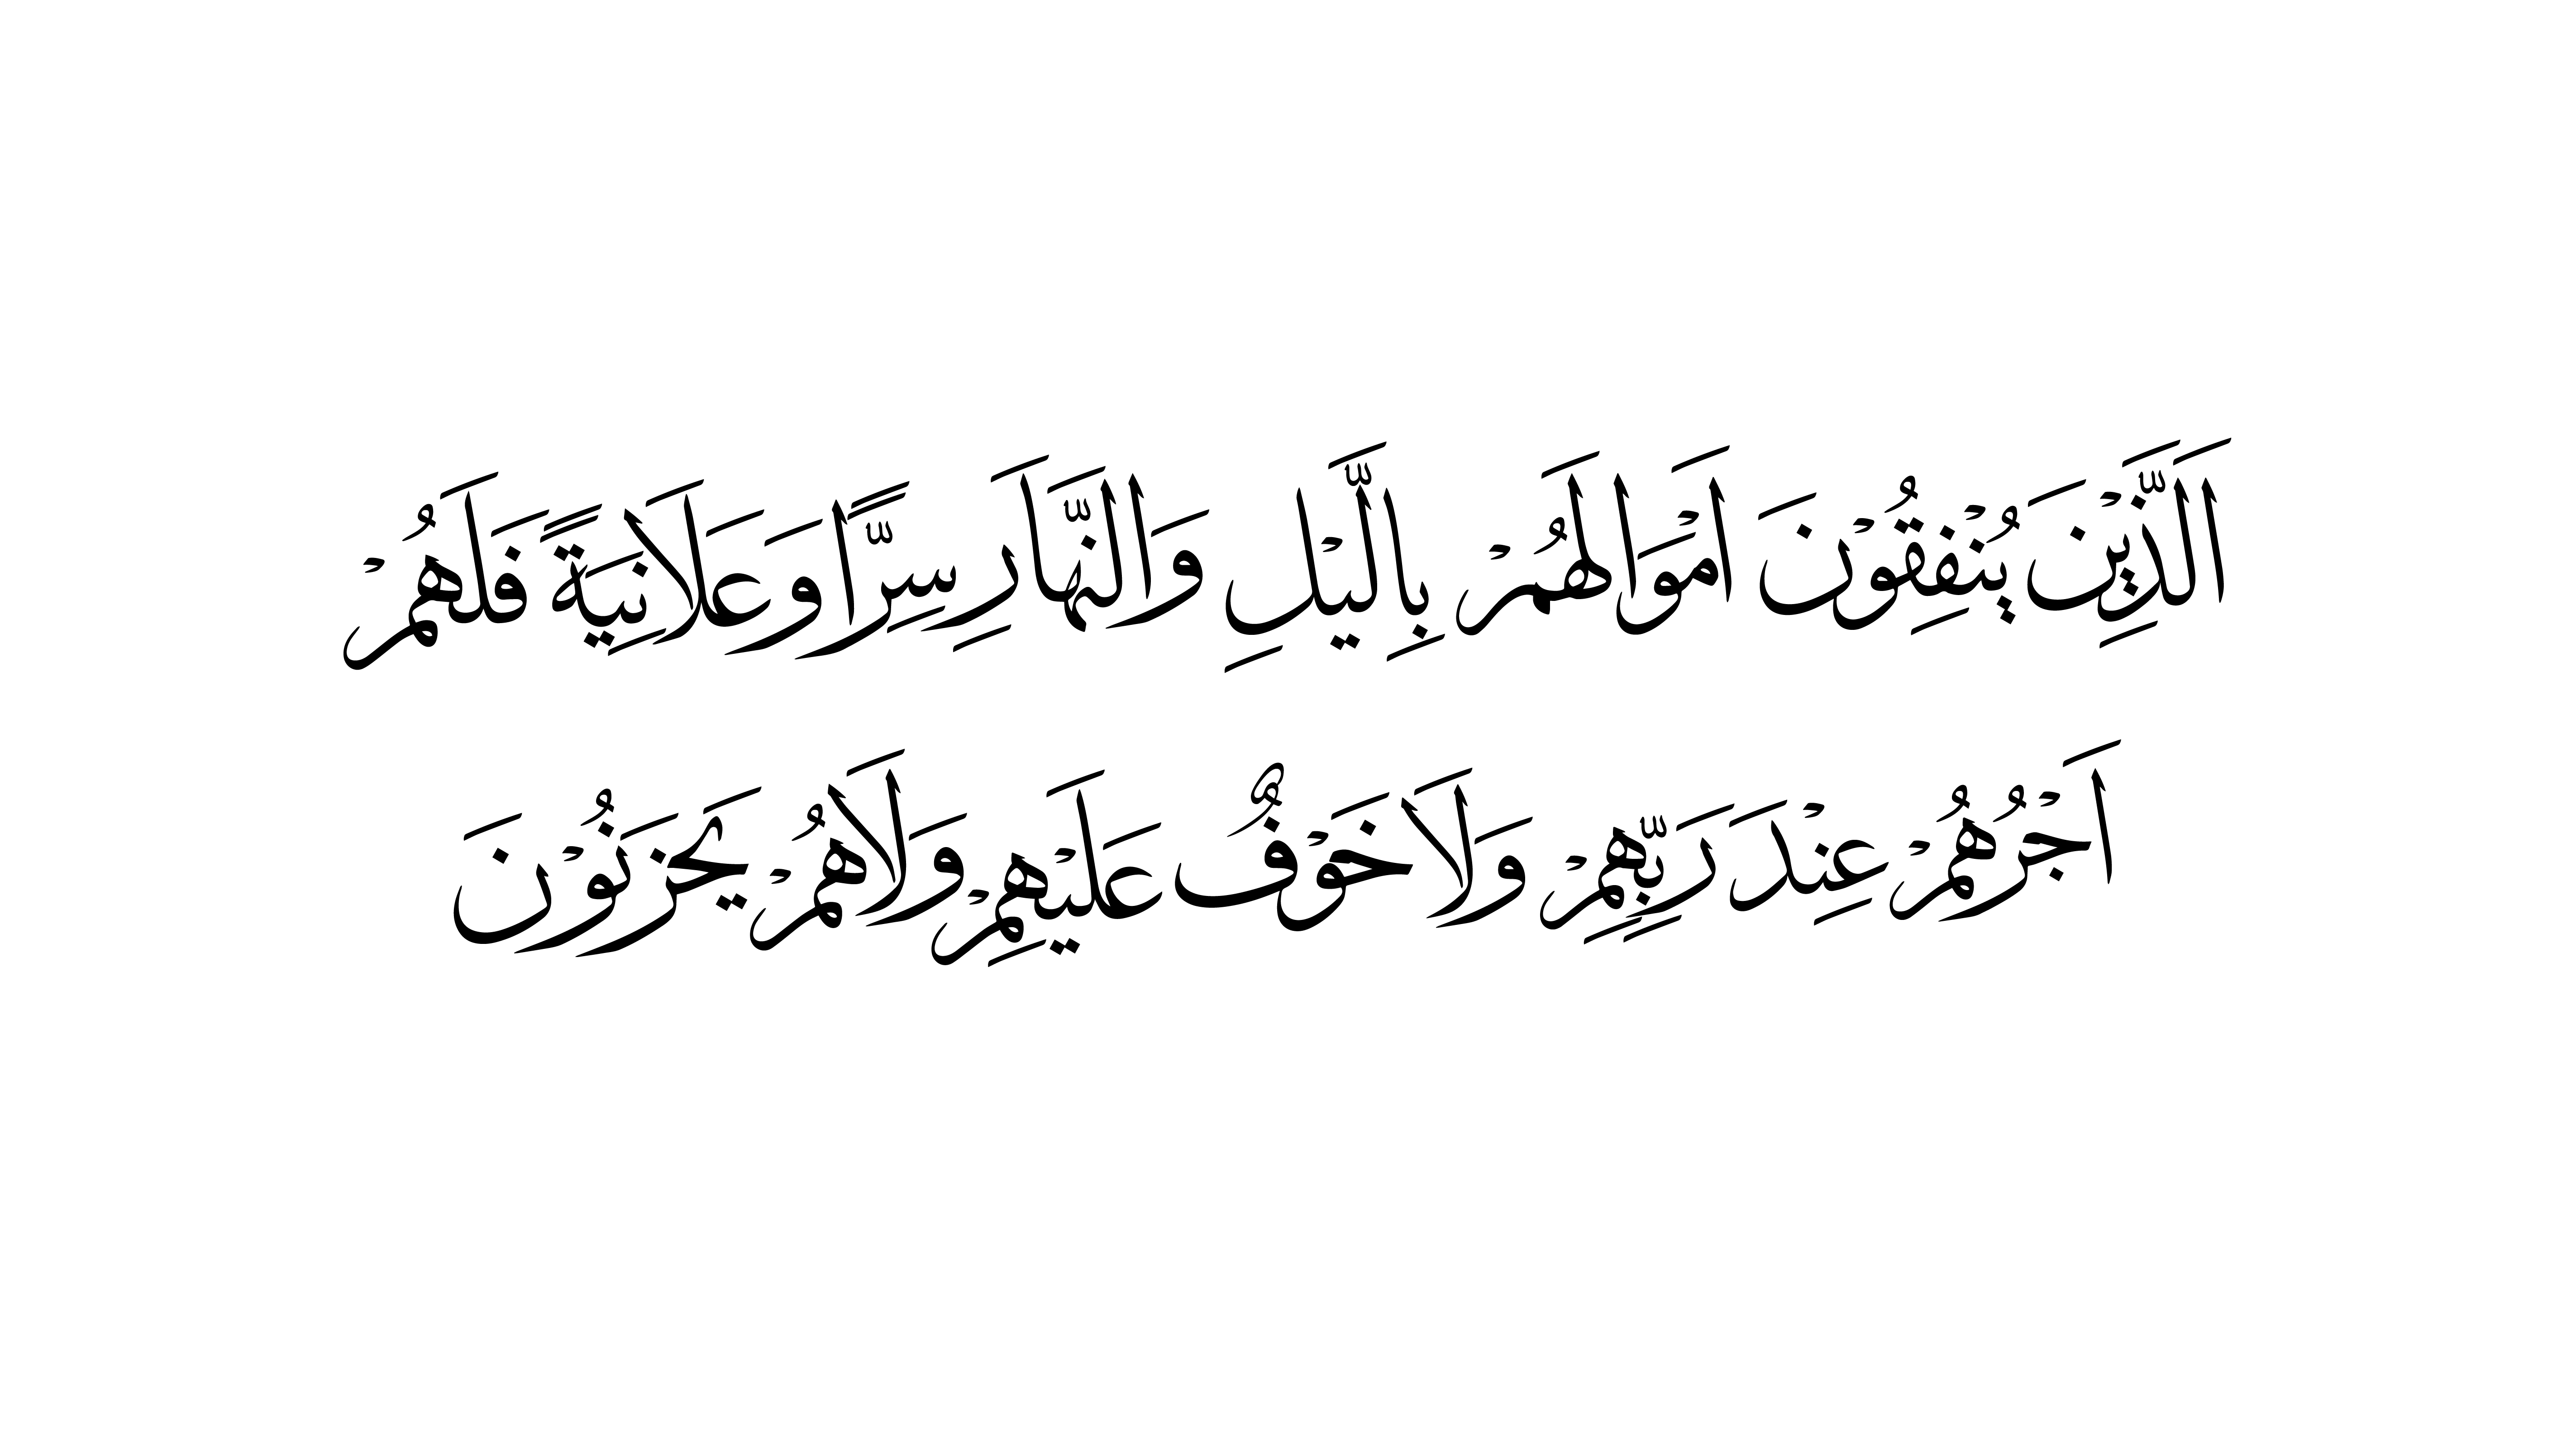 اَلَّذِيْنَ يُنْفِقُوْنَ اَمْوَالَهُمْ بِالَّيْلِ وَالنَّهَارِ سِرًّا وَعَلَانِيَةً فَلَهُمْ
اَجْرُهُمْ عِنْدَ رَبِّهِمْ وَلَا خَوْفٌ عَلَيْهِمْ وَلَا هُمْ يَحْزَنُوْنَ